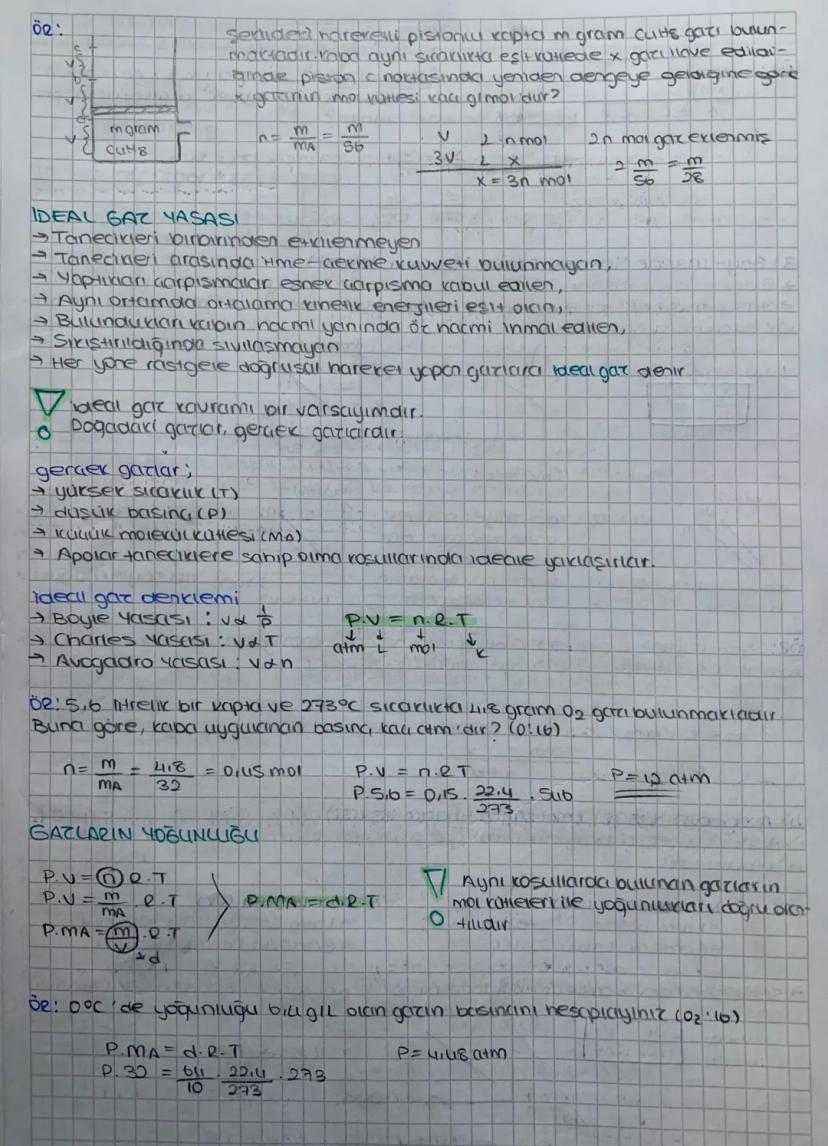 ÖR:
Şekildeki hareketli pistonlu kapta m gram C4H8 gazı bulun-
maktadır. kaba aynı sıcaklıkta eşit kütlede x gazı ilave edildi-
ğinde piston c noktasında yeniden dengeye geldiğine göre
x gazının mol kütlesi kaç g/mol'dür?
c
v
b
v
a
v
m gram
C4H8
n = m/MA = m/56
V n mol
3V x
x = 3n mol
2n mol gaz eklenmiş
2 m/56 = m/28
İDEAL GAZ YASASI
→ Tanecikleri birbirinden etkilenmeyen
→ Tanecikleri arasında itme-çekme kuvveti bulunmayan,
→ Yaptıkları çarpışmalar esnek çarpışma kabul edilen,
→ Aynı ortamda ortalama kinetik enerjileri eşit olan,
→ Bulundukları kabın hacmi yanında öz hacmi ihmal edilen,
→ Sıkıştırıldığında sıvılaşmayan
→ Her yöne rastgele doğrusal hareket yapan gazlara ideal gaz denir
ideal gaz kavramı bir varsayımdır.
Doğadaki gazlar, gerçek gazlardır.
gerçek gazlar;
→ yüksek sıcaklık (T)
→ düşük basınç (P)
→ küçük molekül kütlesi (MA)
→ Apolar taneciklere sahip olma koşullarında ideale yaklaşırlar.
ideal gaz denklemi
→ Boyle Yasası : V α 1/P
→ Charles Yasası : V α T
→ Avogadro Yasası : V α n
P.V = n.R.T
atm L mol K
ÖR: 5,6 litrelik bir kapta ve 273°C sıcaklıkta 4,8 gram O2 gazı bulunmaktadır
Buna göre, kaba uygulanan basınç kaç atm'dir? (O:16)
n = m/MA = 4,8/32 = 0,15 mol
P.V = n.R.T
P.5,6 = 0,15 . 22,4/273 . 546
P = 1,2 atm
GAZLARIN YOĞUNLUĞU
P.V = n R.T
P.V = m/MA . R.T
P.MA = m/V . R.T
→ d
P.MA = d.R.T
Aynı koşullarda bulunan gazların
mol kütleleri ile yoğunlukları doğru oran-
tılıdır
ÖR: 0°C 'de yoğunluğu 6,4 g/L olan gazın basıncını hesaplayınız (O2:16)
P.MA = d.R.T
P.32 = 64/10 . 22,4/273 . 273
P = 4,48 atm